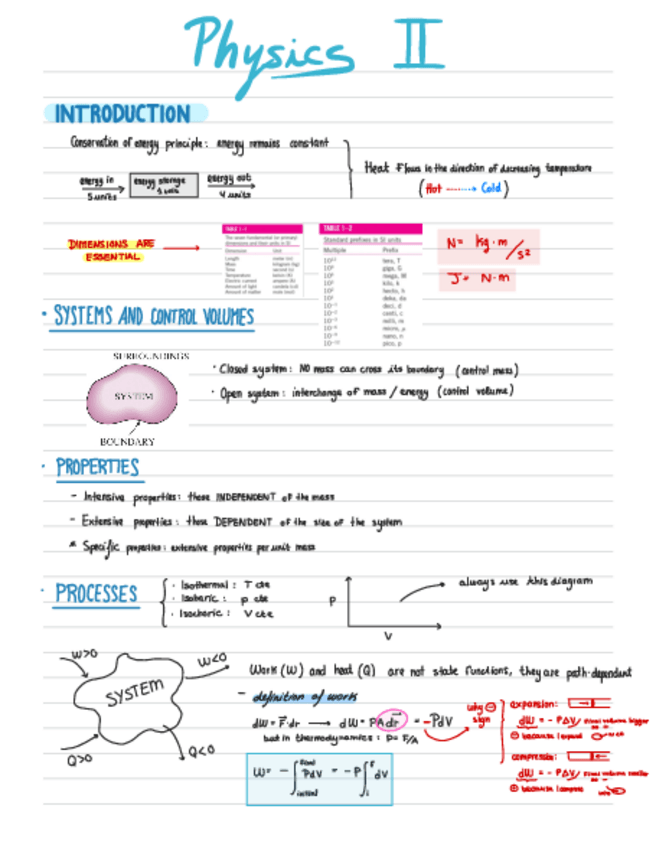 Physics II
INTRODUCTION
Conservation of energy principle: energy remains constant
energy in
5 units
energy storage
1 unit
energy out
4 units
Heat flows in the direction of decreasing temperature
(Hot → Cold)
DIMENSIONS ARE
ESSENTIAL
TABLE 1-1
The seven fundamental (or primary)
dimensions and their units in SI
Dimension Unit
Length meter (m)
Mass kilogram (kg)
Time second (s)
Temperature kelvin (K)
Electric current ampere (A)
Amount of light candela (cd)
Amount of matter mole (mol)
TABLE 1-2
Standard prefixes in SI units
Multiple Prefix
tera, T
giga, G
mega, M
kilo, k
hecto, h
deka, da
deci, d
centi, c
milli, m
micro, μ
nano, n
pico, p
N = kg · m / s²
J = N · m
· SYSTEMS AND CONTROL VOLUMES
SURROUNDINGS
SYSTEM
BOUNDARY
· Closed system: NO mass can cross its boundary (control mass)
· Open system: interchange of mass / energy (control volume)
· PROPERTIES
- Intensive properties: those INDEPENDENT of the mass
- Extensive properties: those DEPENDENT of the size of the system
* Specific properties: extensive properties per unit mass
· PROCESSES
· Isothermal: T cte
· Isobaric: p cte
· Isochoric: V cte
P
V
always use this diagram
W>0
W<0
SYSTEM
Q>0
Q<0
Work (W) and heat (Q) are not state functions, they are path-dependent
- definition of work
dW = F dr → dW = PA dr = -PdV
but in thermodynamics: P = F/A
why ⊖
sign
expansion:
dW = - PΔV / final volume bigger
⊖ because I expand
compression:
dW = - PΔV / final volume smaller
⊕ because I compress
W = - ∫ PdV = -P ∫ dV
final
initial
f
i